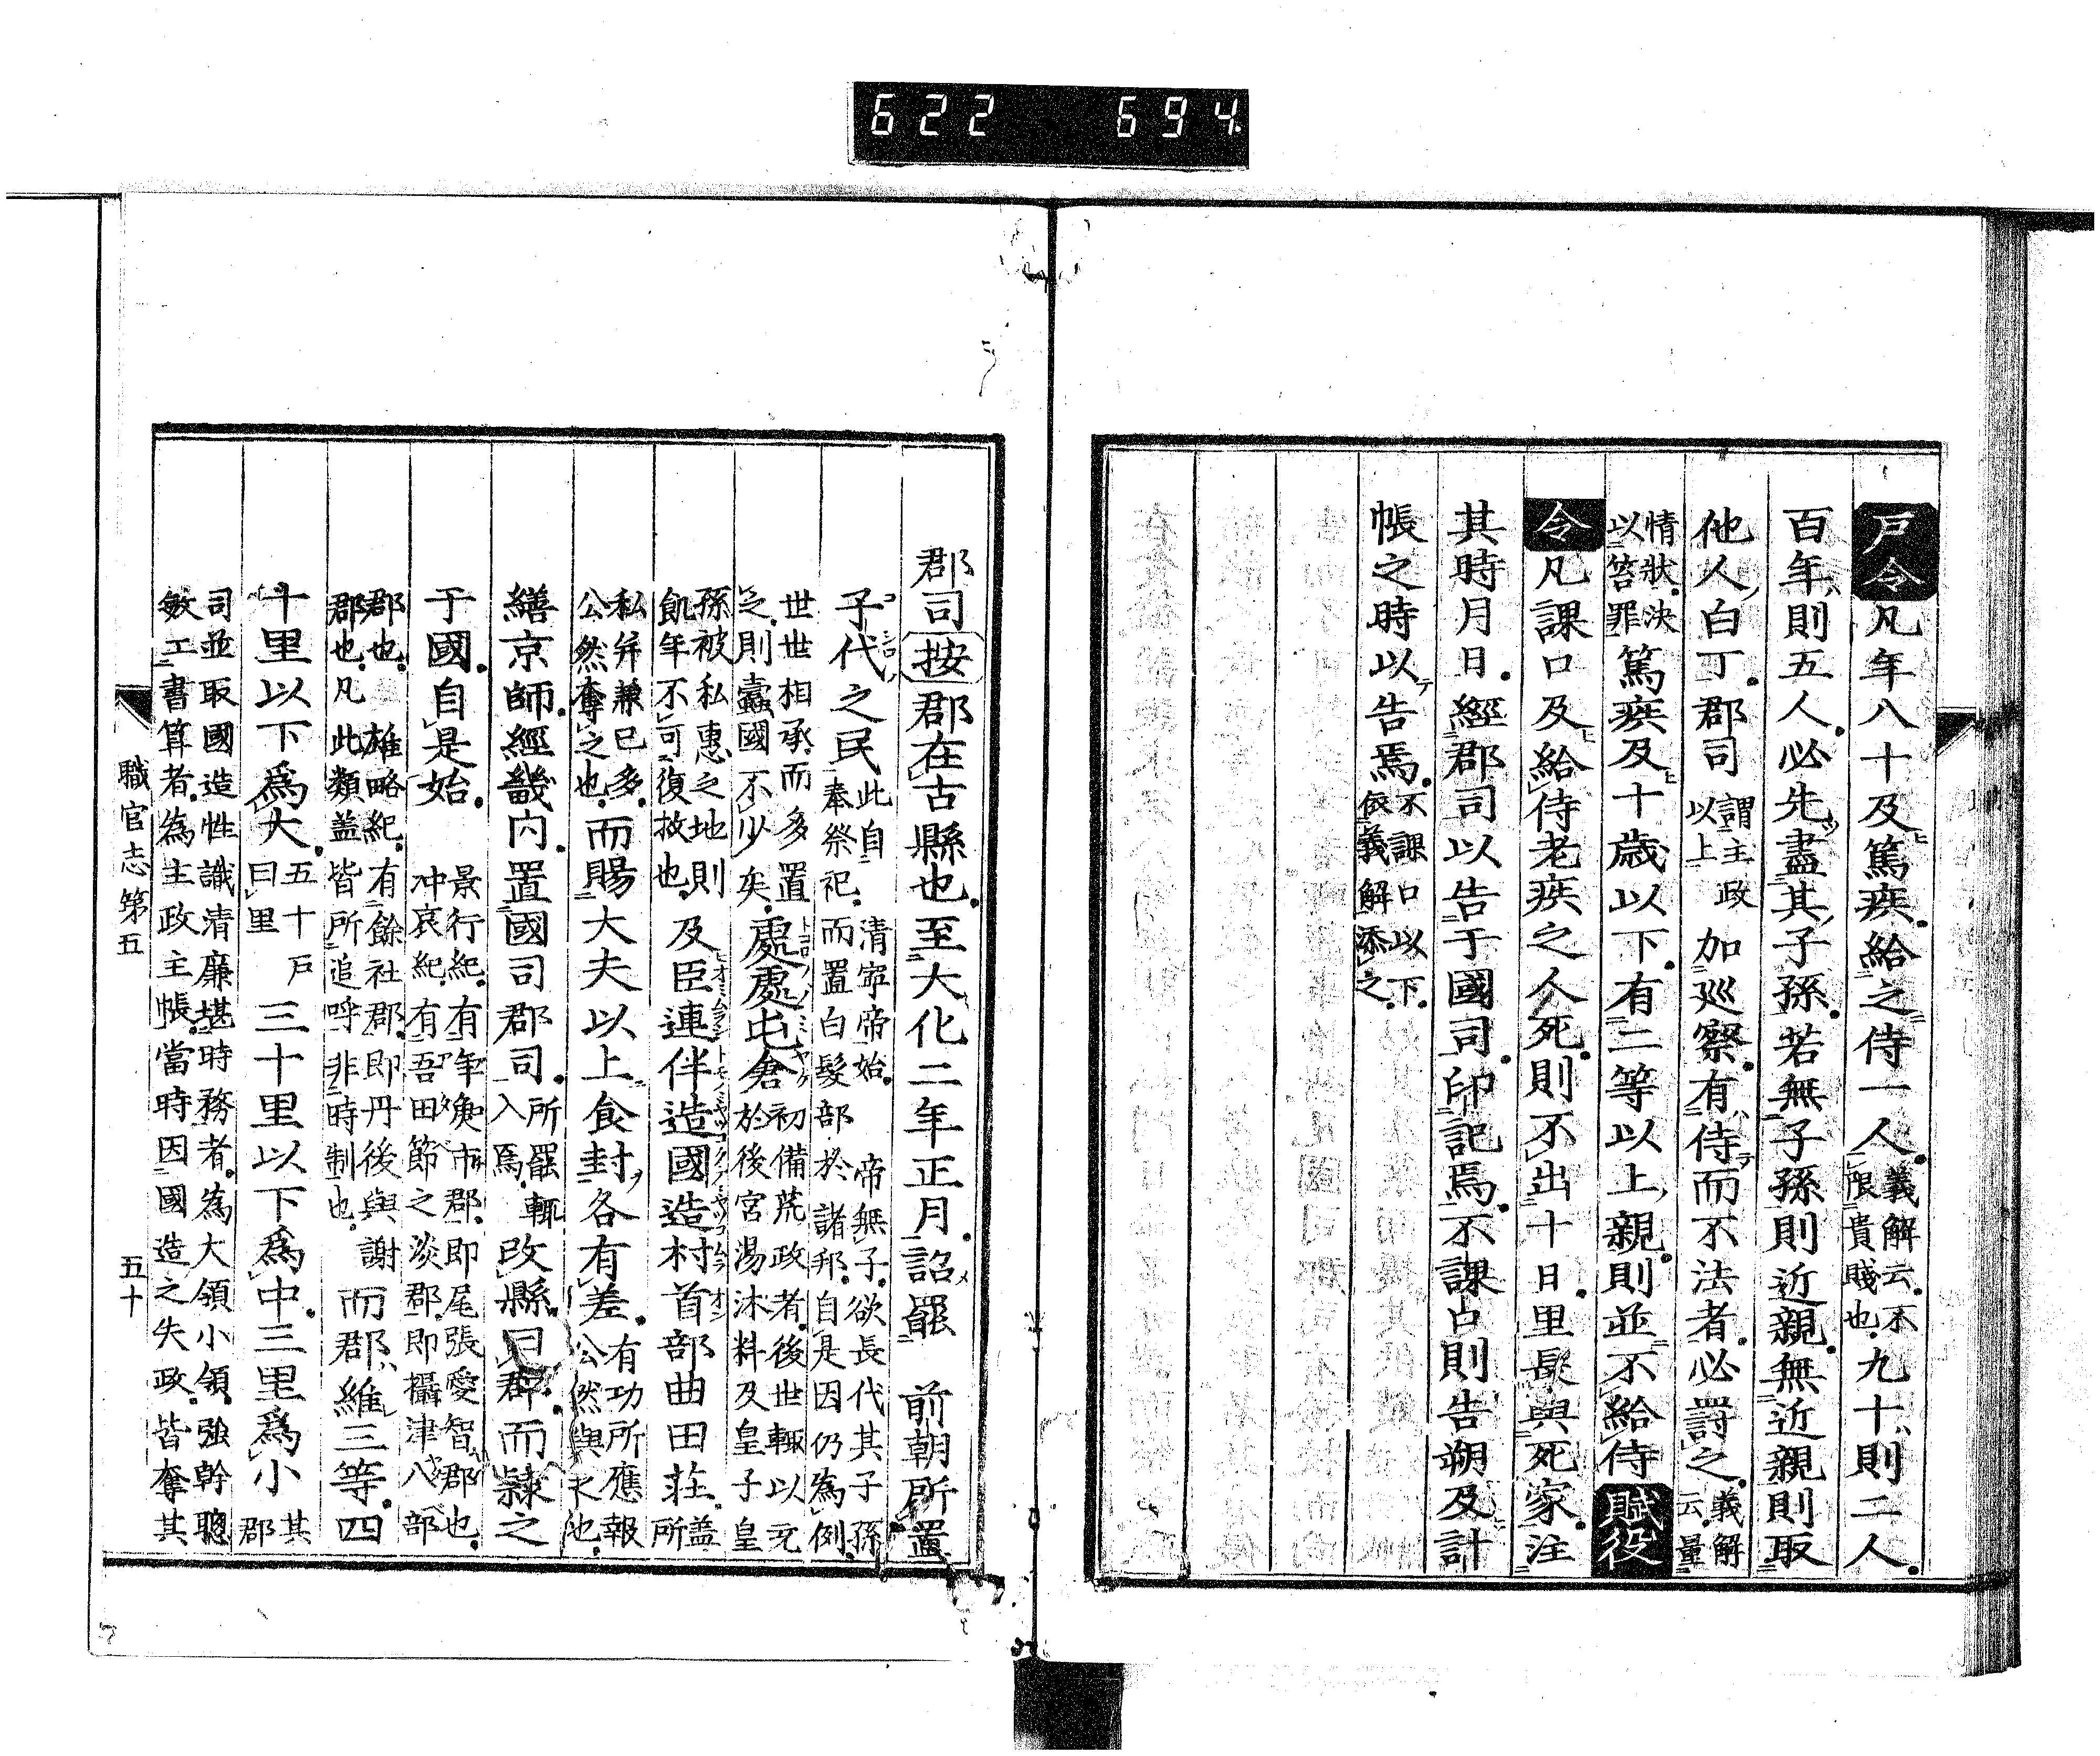 622 694
戸令凡年八十及篤疾給之侍一人義解云不限貴賤也九十則二人
百年則五人必先盡其子孫若無子孫則近親無近親則取
他人白丁郡司謂主政以上加巡察有侍而不法者必罸之義解云量
情狀決以笞罪篤疾及十歳以下有二等以上親則並不給侍賦役
令凡課口及給侍老疾之人死則不出十日里長與死家注
其時月日經郡司以告于國司印記焉不課口則告朔及計
帳之時以告焉不課口以下依義解添之
郡司按郡在古縣也至大化二年正月詔罷前朝所置
子代之民此自清寧帝始帝無子欲長代其子孫奉祭祀而置白髮部於諸邦自是因仍為例
世世相承而多置之則蠧國不少矣處處屯倉初備荒政者後世輙以充於後宮湯沐料及皇子皇
孫被私惠之地則飢年不可復救也及臣連伴造國造村首部曲田莊盖所
私并兼已多公然奪之也而賜大夫以上食封各有差有功所應報公然與之也
繕京師經畿内置國司郡司所罷輙入焉改縣曰郡而隷之
于國自是始景行紀有年魚市郡即尾張愛智郡也仲哀紀有吾田節之淡郡即攝津八部
郡也雄略紀有餘社郡即丹後與謝郡也凡此類盖皆所追呼非時制也而郡維三等四
十里以下爲大五十戸曰里三十里以下爲中三里爲小其郡
司並取國造性識清廉堪時務者為大領小領強幹聰敏工書算者為主政主帳當時因國造之失政皆奪其
職官志第五 五十